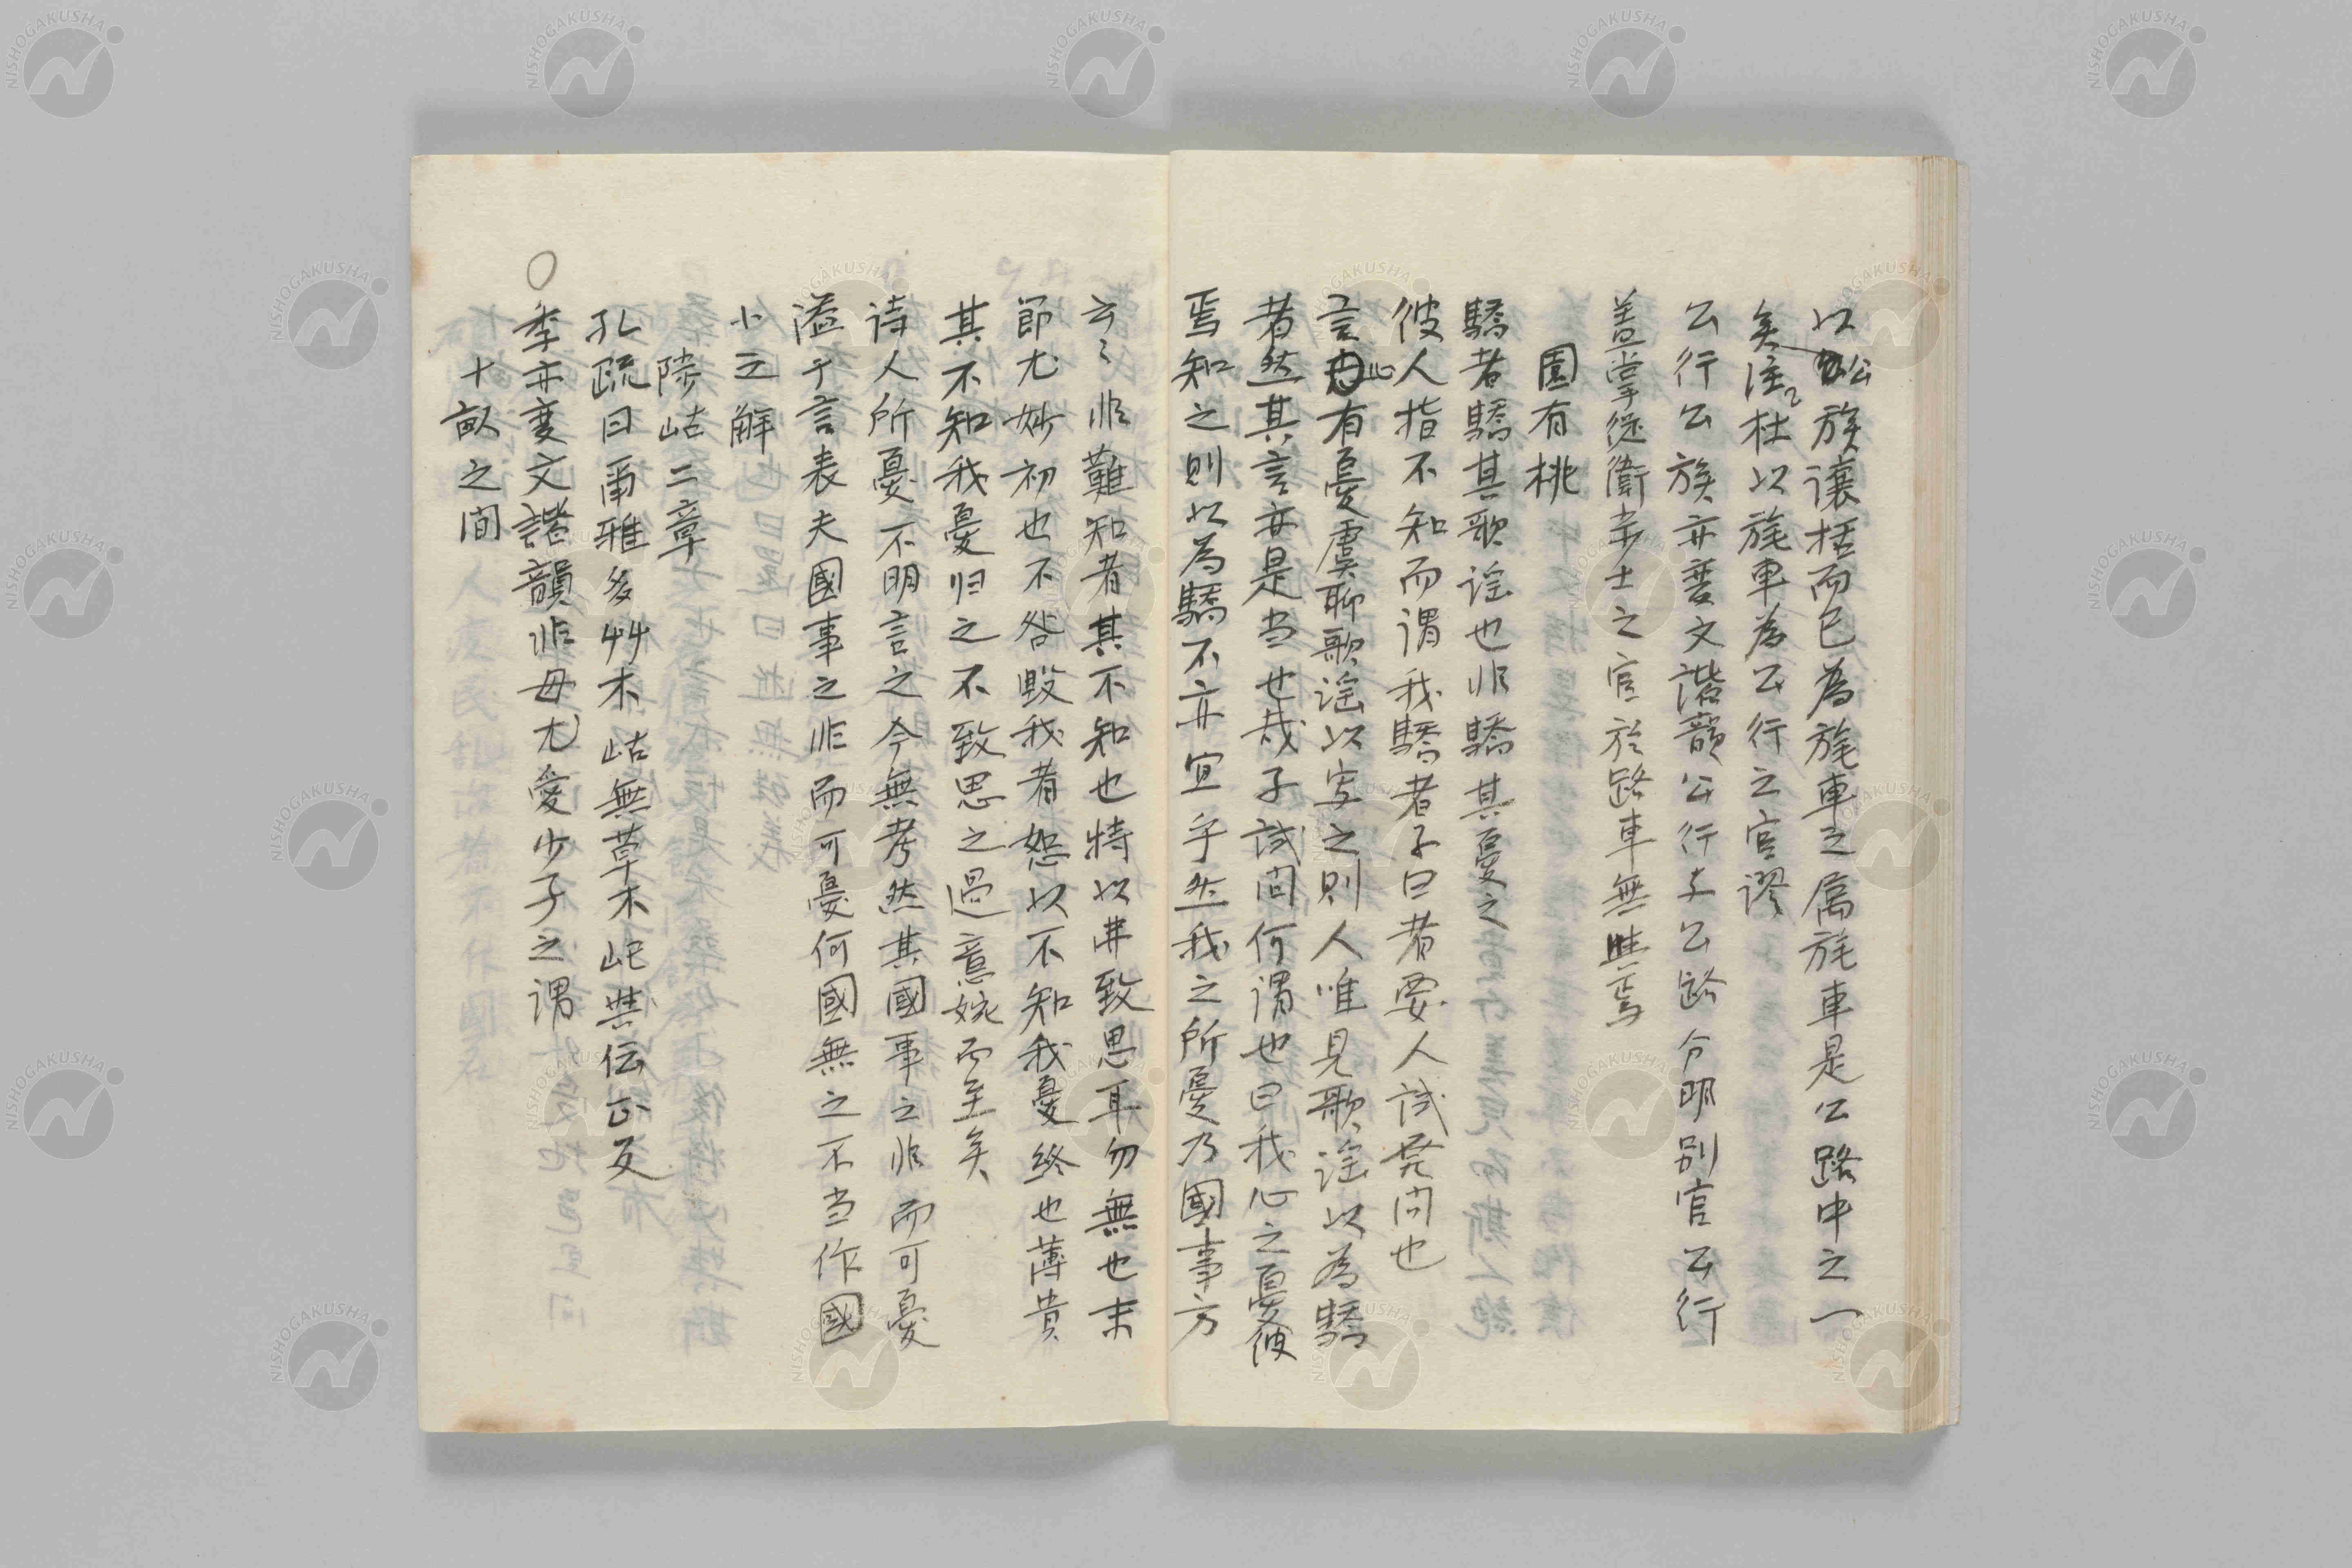 以公族讓括而已為旄車之属旄車是公路中之一
矣注杜以旄車為公行之官謬
公行公族亦変文諧韻公行主公路今明別官公行
盖掌從衛卒士之官於路車無與焉
園有桃
驕者驕其歌謡也非驕其憂之
彼人指不知而謂我驕者子曰者要人試発問也
言心有憂虞聊歌謡以写之則人唯見歌謡以為驕
者然其言亦是当也哉子試問何謂也曰我心之憂彼
焉知之則以為驕不亦宜乎然我之所憂乃國事方
云〻非難知者其不知也特以弗致思耳勿無也末
節尤妙初也不咎毀我者恕以不知我憂終也薄責
其不知我憂归之不致思之過意婉而至矣
诗人所憂不明言之今無考然其國事之非而可憂
溢于言表夫國事之非而可憂何國無之不当作國
小之解
陟岵二章
孔疏曰爾雅多艸木岵無草木屺與伝正反
〇季亦変文諧韻非母尤愛少子之謂
十畝之間
NISHOGAKUSHA